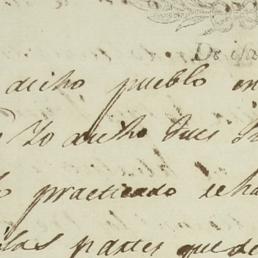 De of
dicho pueblo en
Yo dicho Juez
practicado se ha
las partes que de